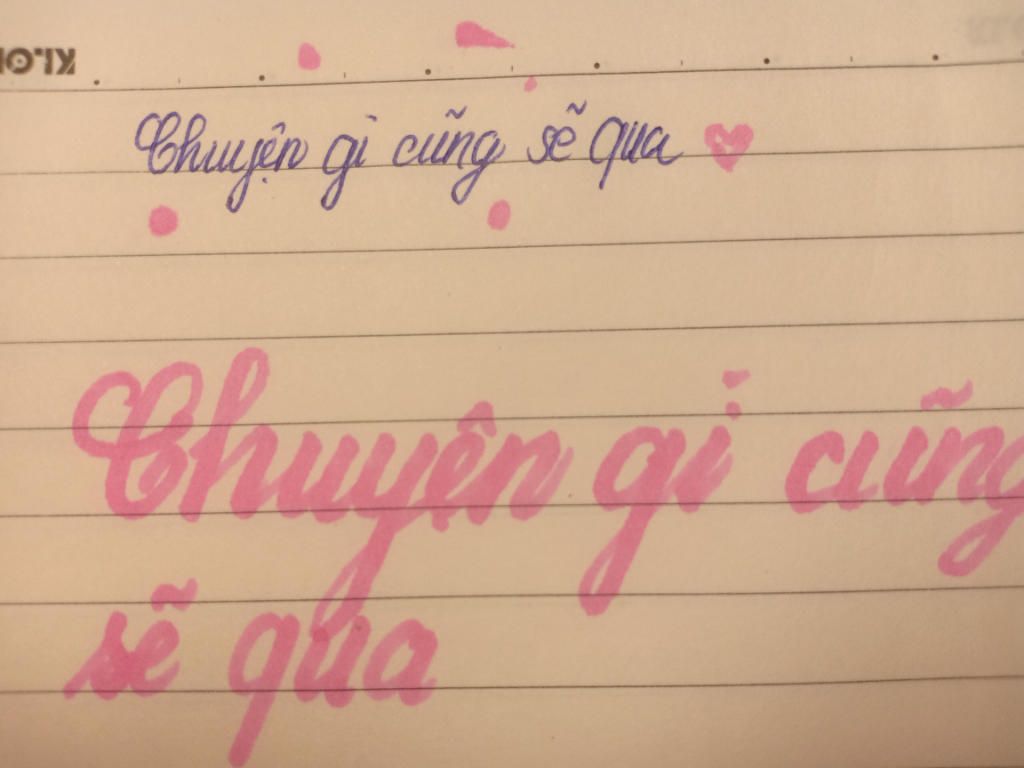 Chuyện gì cũng sẽ qua
Chuyện gì cũng
sẽ qua